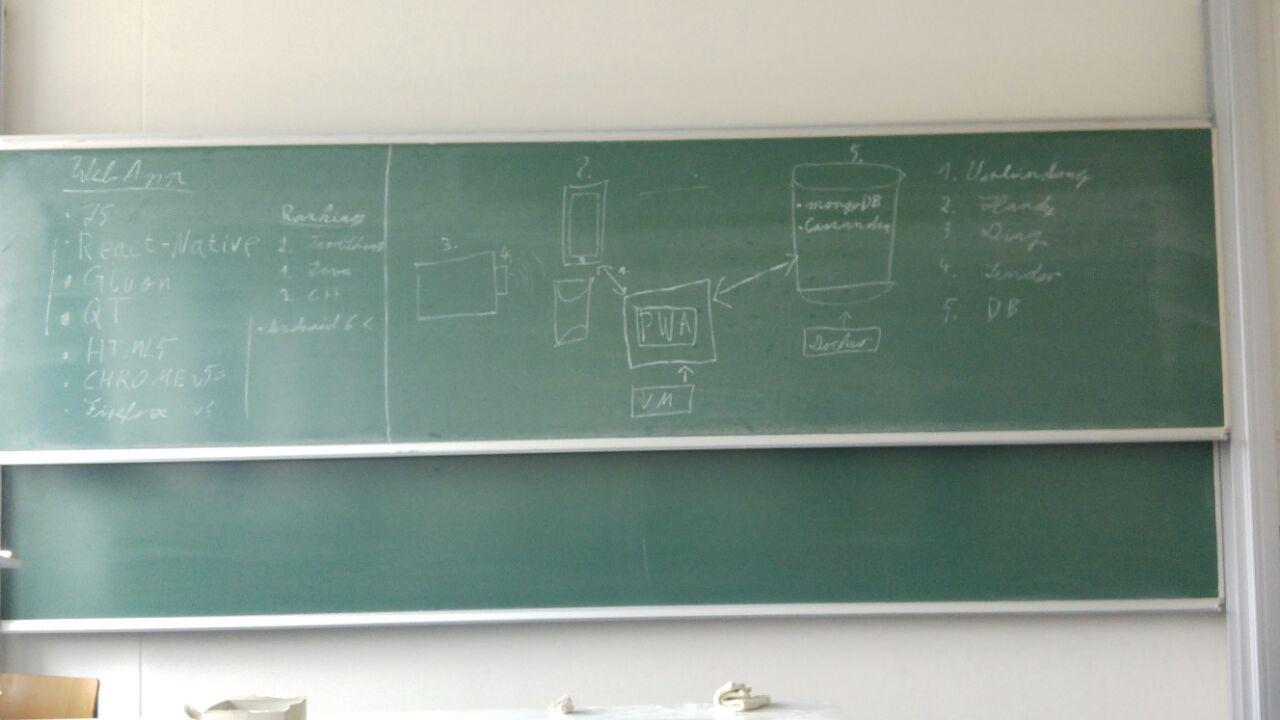 Web App
• JS
• React-Native
• Gluon
• QT
• HTML5
• CHROME
• Firefox
Ranking
2. JavaScript
1. Java
3. C++
• Android 6 <
3.
4.
2.
1.
PWA
VM
5.
• mongoDB
• Cassandra
Docker
1. Verbindung
2. Handy
3. Ding
4. Sender
5. DB